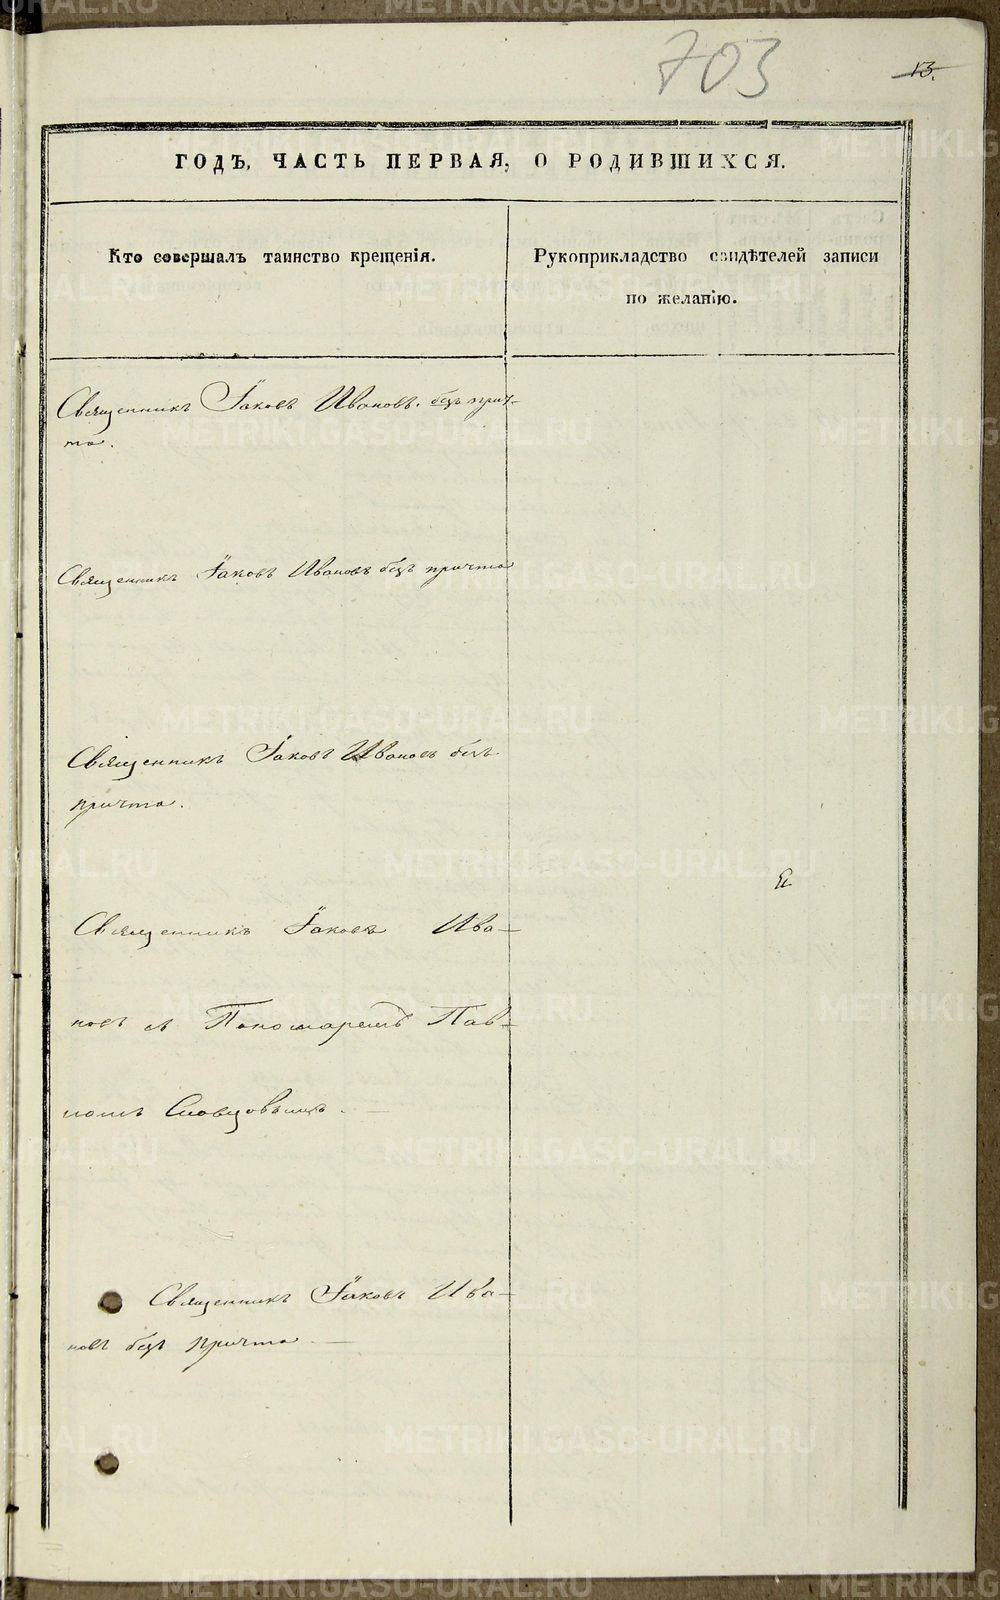 703
13.
ГОДЪ, ЧАСТЬ ПЕРВАЯ, О РОДИВШИХСЯ.
Кто совершалъ таинство крещенія.
Рукоприкладство свидѣтелей записи
по желанію.
Священникъ Іаковъ Ивановъ. безъ прич-
та.
Священникъ Іаковъ Ивановъ безъ причта
Священникъ Іаковъ Ивановъ безъ
причта.
Священникъ Іаковъ Ива-
новъ съ Пономаремъ Пав-
ломъ Словцовымъ.
Священникъ Іаковъ Ива-
новъ безъ причта
METRIKI.GASO-URAL.RU